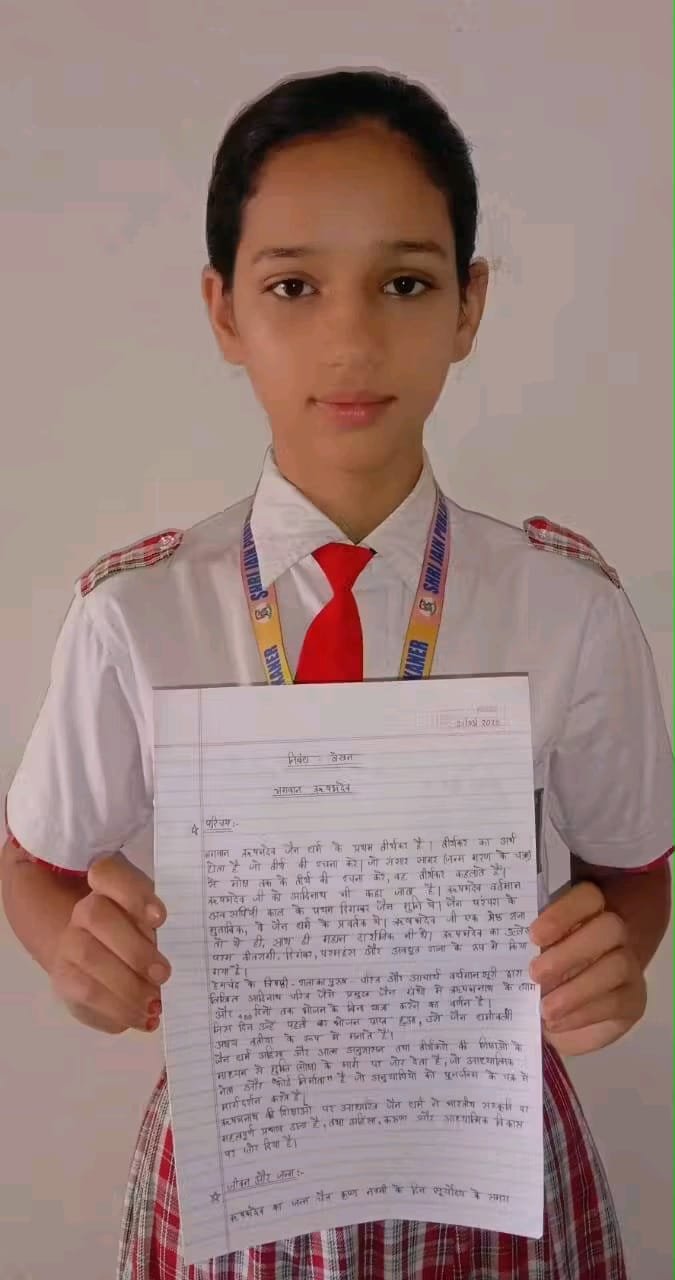 SHRI JAIN PU
SHRI JAIN PUB
KANER
KANER
निबंध - लेखन
भगवान ऋषभदेव
परिचय:-
भगवान ऋषभदेव जैन धर्म के प्रथम तीर्थंकर है। तीर्थंकर का अर्थ
होता है जो तीर्थ की रचना करें। जो संसार सागर (जन्म मरण के चक्र)
से मोक्ष तक के तीर्थ की रचना करे, वह तीर्थंकर कहलाते हैं।
ऋषभदेव जी को आदिनाथ भी कहा जाता है। ऋषभदेव वर्तमान
अवसर्पिणी काल के प्रथम दिगम्बर जैन मुनि थे। जैन परंपरा के
मुताबिक, वे जैन धर्म के प्रवर्तक थे। ऋषभदेव जी एक श्रेष्ठ राजा
तो थे ही, साथ ही महान दार्शनिक भी थे। ऋषभदेव का उल्लेख
परम वीतरागी, दिगंबर, परमहंस और अवधूत राजा के रूप में किया
गया है।
हेमचंद्र के त्रिषष्टी-शलाकापुरुष-चरित्र और आचार्य वर्धमानसूरी द्वारा
लिखित आदिनाथ चरित्र जैसे प्रमुख जैन ग्रंथों में ऋषभनाथ के त्याग
और 400 दिनों तक भोजन के बिना यात्रा करने का वर्णन है।
जिस दिन उन्हें पहली बार भोजन प्राप्त हुआ, उसे जैन धर्मावलंबी
अक्षय तृतीया के रूप में मनाते हैं।
जैन धर्म अहिंसा और आत्म अनुशासन तथा तीर्थंकरों की शिक्षाओं के
माध्यम से मुक्ति (मोक्ष) के मार्ग पर जोर देता है, जो आध्यात्मिक
नेता और "फोर्ड निर्माता" है जो अनुयायियों को पुनर्जन्म के चक्र से
मार्गदर्शन करते हैं।
ऋषभनाथ की शिक्षाओं पर आधारित जैन धर्म ने भारतीय संस्कृति पर
महत्वपूर्ण प्रभाव डाला है, तथा अहिंसा, करुणा और आध्यात्मिक विकास
पर जोर दिया है।
जीवन और जन्म:-
ऋषभदेव का जन्म चैत्र कृष्ण नवमी के दिन सूर्योदय के समय